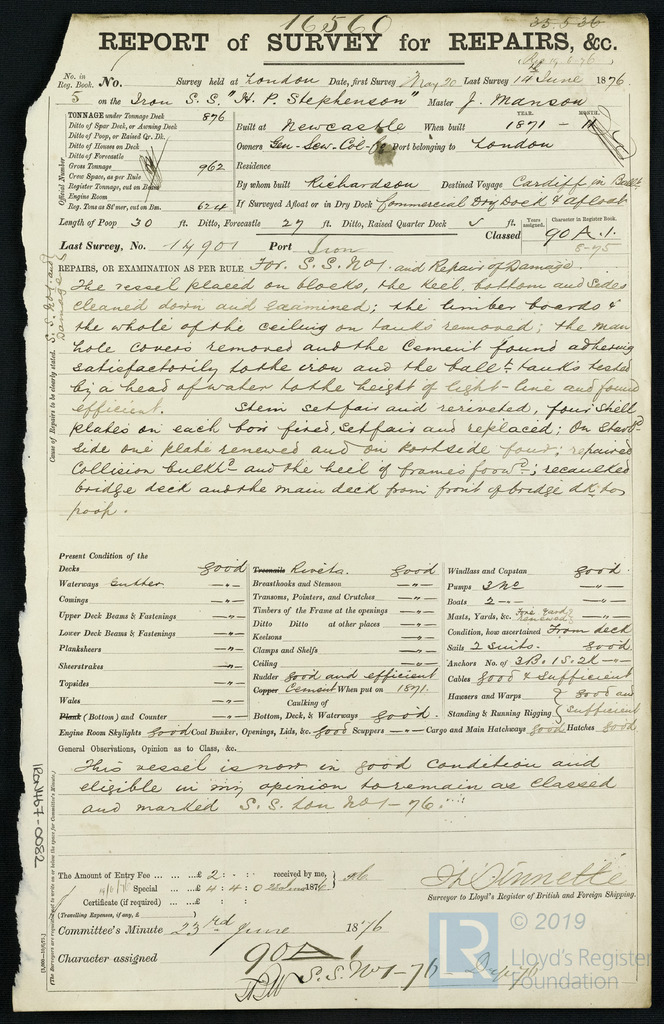 16560
35.536
REPORT of SURVEY for REPAIRS, &c.
No. in Reg. Book. No. Survey held at London Date, first Survey May 20 Last Survey 14th June 1876
5 on the Iron S.S. "H. P. Stephenson" Master J. Manson
TONNAGE under Tonnage Deck 876
Ditto of Spar Deck, or Awning Deck
Ditto of Poop, or Raised Qr. Dk.
Ditto of Houses on Deck
Ditto of Forecastle
Gross Tonnage 962
Crew Space, as per Rule
Register Tonnage, cut on Beam
Engine Room
Reg. Tons as St'mer, cut on Bm. 624
Official Number
Built at Newcastle When built YEAR. 1871 - MONTH. 11
Owners Gen. Sew. Col. Co Port belonging to London
Residence
By whom built Richardson Destined Voyage Cardiff in Ballt
If Surveyed Afloat or in Dry Dock Commercial Dry Dock & Afloat
Length of Poop 30 ft. Ditto, Forecastle 27 ft. Ditto, Raised Quarter Deck ft.
Years assigned. Character in Register Book.
Classed 90 A.1.
8-75
Last Survey, No. 14901 Port Iron
REPAIRS, OR EXAMINATION AS PER RULE For S.S. No 1. and Repair of Damage.
Cause of Repairs to be clearly stated. S.S. No 1. and Damage
The vessel placed on blocks, the keel, bottom and sides
cleaned down and examined; the limber boards &
the whole of the ceiling on tanks removed; the man
hole covers removed and the cement found adhering
satisfactorily to the iron and the ballt tanks tested
by a head of water to the height of light-line and found
efficient. Stem set fair and reriveted, four shell
plates on each bow fired, set fair and replaced; On Starbd
side one plate renewed and on portside four; repaired
Collision bulkhd and the heel of frames forwd; recaulked
bridge deck and the main deck from front of bridge dk to
poop.
Present Condition of the
Decks Good
Waterways Gutter -"-
Comings -"-
Upper Deck Beams & Fastenings -"-
Lower Deck Beams & Fastenings -"-
Planksheers -"-
Sheerstrakes -"-
Topsides -"-
Wales -"-
Plank (Bottom) and Counter -"-
Treenails Rivets. Good
Breasthooks and Stemson -"-
Transoms, Pointers, and Crutches -"-
Timbers of the Frame at the openings -"-
Ditto Ditto at other places -"-
Keelsons -"-
Clamps and Shelfs -"-
Ceiling -"-
Rudder Good and efficient
Copper Cement When put on 1871.
Caulking of
Bottom, Deck, & Waterways Good.
Windlass and Capstan Good.
Pumps 3 No -"-
Boats 2 -"-
Masts, Yards, &c. Fore yard renewed -"-
Condition, how ascertained From deck
Sails 2 Suits. Good
Anchors No. of 3B. 1S. 2K -"-
Cables Good & Sufficient
Hawsers and Warps
Standing & Running Rigging } Good and Sufficient
Engine Room Skylights Good Coal Bunker, Openings, Lids, &c. Good Scuppers -"- Cargo and Main Hatchways Good Hatches Good
General Observations, Opinion as to Class, &c.
This vessel is now in good condition and
eligible in my opinion to remain as Classed
and marked S.S. Lon No 1-76.
IRON467-0082
The Amount of Entry Fee ... £ 2 : : received by me,
Special ... £ 4 : 4 : 0
Certificate (if required) ... £ : :
(Travelling Expenses, if any, £ )
Surveyor to Lloyd's Register of British and Foreign Shipping.
Committee's Minute 23rd June 1876
Character assigned 90 A 1
S.S. No 1-76
LR
© 2019
Lloyd's Register
Foundation